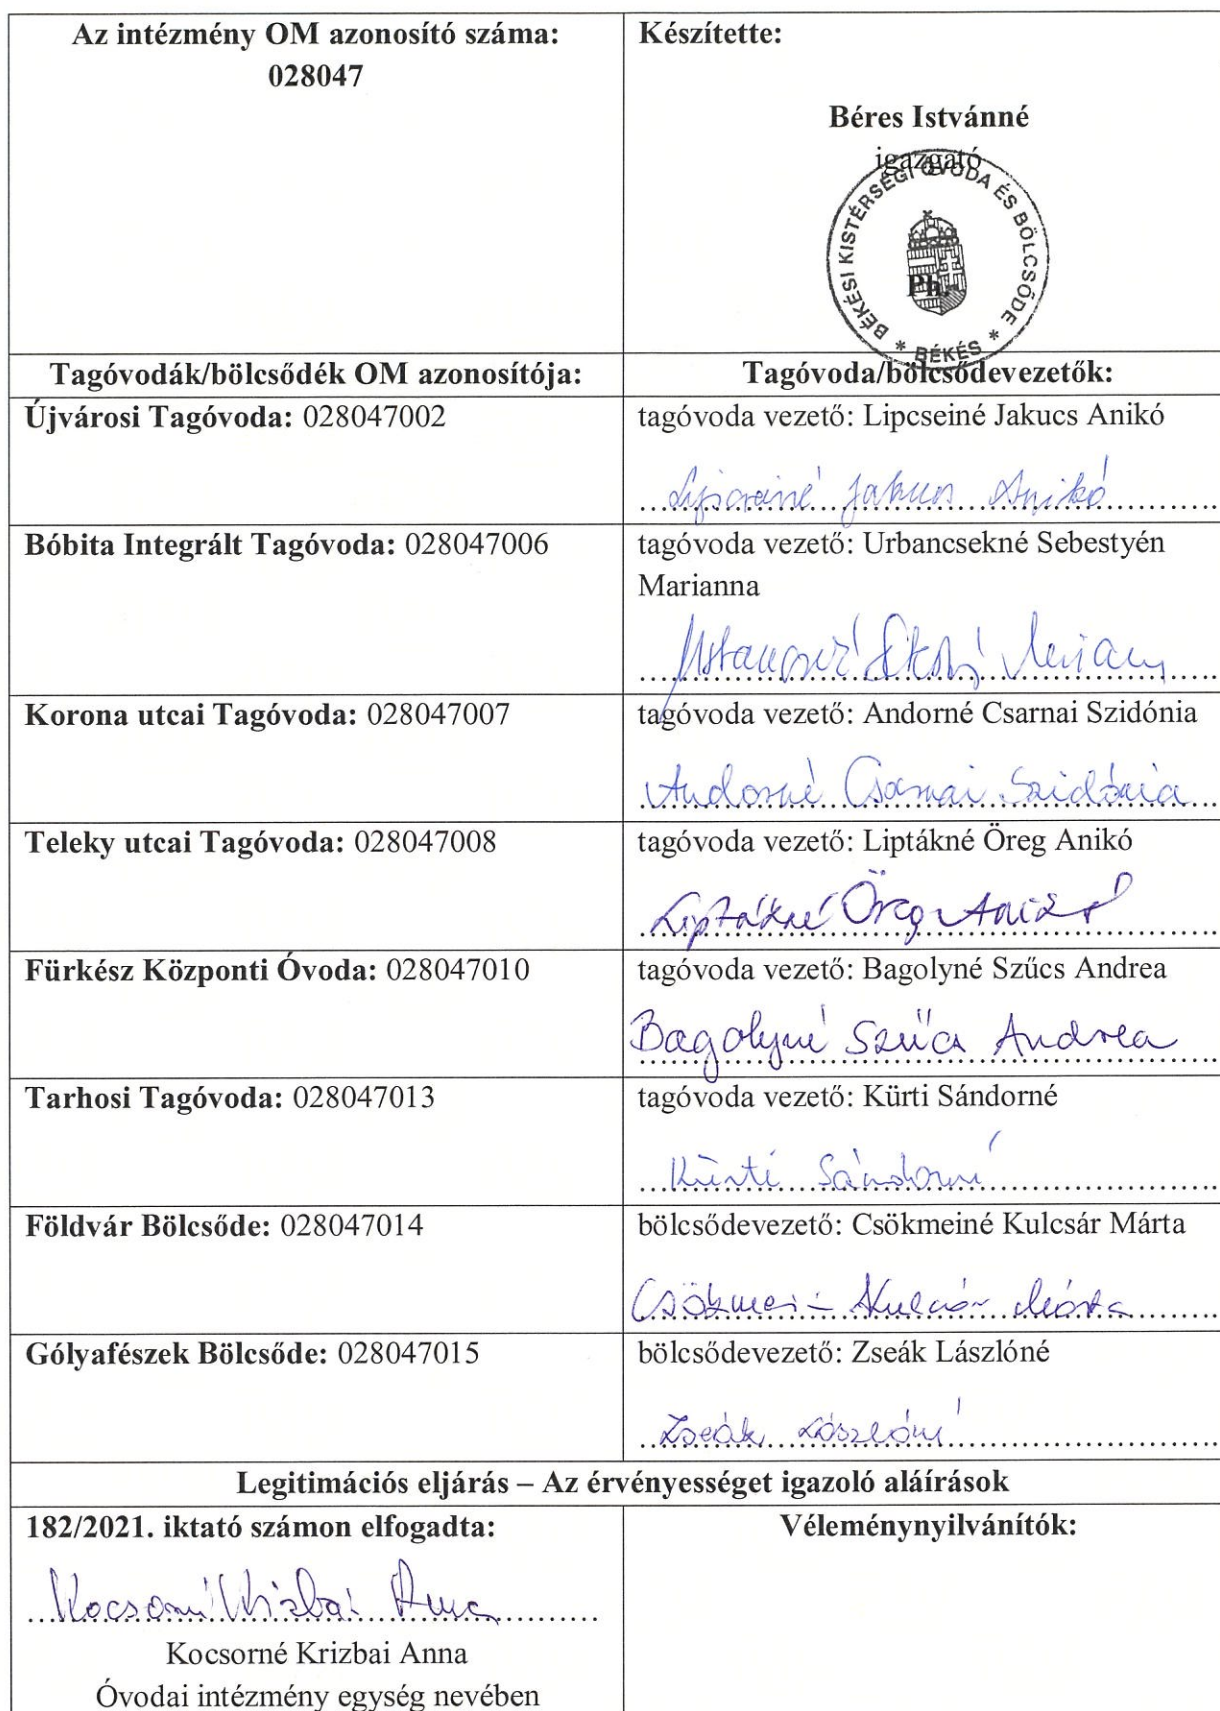 Az intézmény OM azonosító száma:
028047
Készítette:
Béres Istvánné
igazgató
BÉKÉSI KISTÉRSÉGI ÓVODA ÉS BÖLCSŐDE
* BÉKÉS *
Ph.
Tagóvodák/bölcsődék OM azonosítója:
Tagóvoda/bölcsődevezetők:
Újvárosi Tagóvoda: 028047002
tagóvoda vezető: Lipcseiné Jakucs Anikó
Lipcseiné Jakucs Anikó
Bóbita Integrált Tagóvoda: 028047006
tagóvoda vezető: Urbancsekné Sebestyén
Marianna
Korona utcai Tagóvoda: 028047007
tagóvoda vezető: Andorné Csarnai Szidónia
Andorné Csarnai Szidónia
Teleky utcai Tagóvoda: 028047008
tagóvoda vezető: Liptákné Öreg Anikó
Liptákné Öreg Anikó
Fürkész Központi Óvoda: 028047010
tagóvoda vezető: Bagolyné Szűcs Andrea
Bagolyné Szűcs Andrea
Tarhosi Tagóvoda: 028047013
tagóvoda vezető: Kürti Sándorné
Kürti Sándorné
Földvár Bölcsőde: 028047014
bölcsődevezető: Csökmeiné Kulcsár Márta
Csökmei- Kulcsár Márta
Gólyafészek Bölcsőde: 028047015
bölcsődevezető: Zseák Lászlóné
Zseák Lászlóné
Legitimációs eljárás – Az érvényességet igazoló aláírások
182/2021. iktató számon elfogadta:
Véleménynyilvánítók:
Kocsorné Krizbai Anna
Kocsorné Krizbai Anna
Óvodai intézmény egység nevében